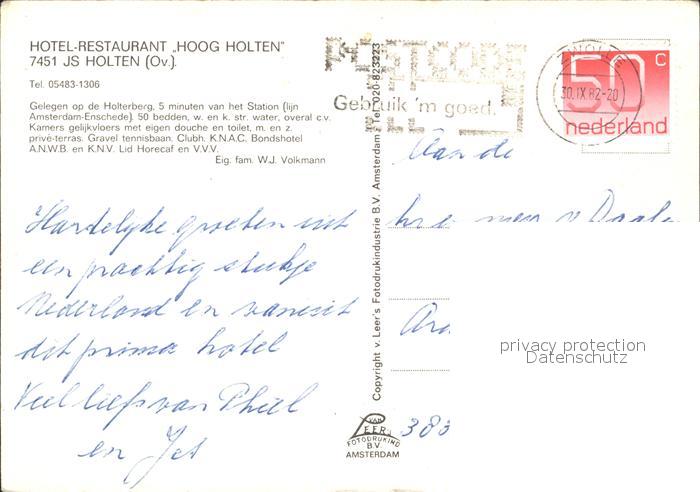 HOTEL-RESTAURANT „HOOG HOLTEN"
7451 JS HOLTEN (Ov.).
Tel. 05483-1306
Gelegen op de Holterberg, 5 minuten van het Station (lijn
Amsterdam-Enschede). 50 bedden, w. en k. str. water, overal c.v.
Kamers gelijkvloers met eigen douche en toilet, m. en z.
privé-terras. Gravel tennisbaan. Clubh. K.N.A.C. Bondshotel
A.N.W.B. en K.N.V. Lid Horecaf en V.V.V.
Eig. fam. W.J. Volkmann
Hartelijke groeten uit
een prachtig stukje
Nederland en vanuit
dit prima hotel
Veel liefs van Phiel
en Jet
Copyright v. Leer's Fotodrukindustrie B.V. Amsterdam Tel. 020-823223
VAN
LEER'S
FOTODRUKIND
B.V.
AMSTERDAM
POSTCODE
Gebruik 'm goed.
ZWOLLE
30.IX.82-20
50 c
nederland
Aan de
v Daale
383
privacy protection
Datenschutz